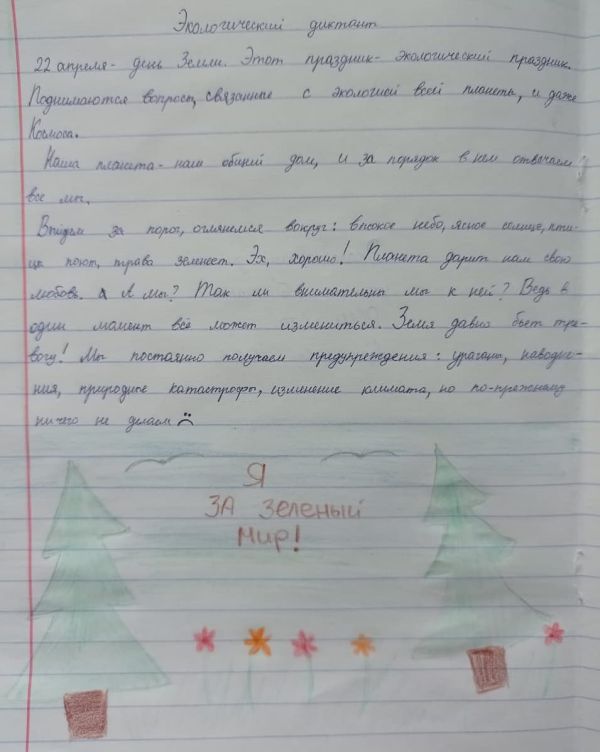 Экологический диктант
22 апреля - день Земли. Этот праздник - экологический праздник.
Поднимаются вопросы, связанные с экологией всей планеты, и даже
Космоса.
Наша планета - наш общий дом, и за порядок в нем отвечаем
все мы.
Выйдем за порог, оглянемся вокруг: высокое небо, ясное солнце, пти-
цы поют, трава зеленеет. Эх, хорошо! Планета дарит нам свою
любовь. А мы? Так ли внимательны мы к ней? Ведь в
один момент всё может измениться. Земля давно бьет тре-
вогу! Мы постоянно получаем предупреждения: ураганы, наводне-
ния, природные катастрофы, изминение климата, но по-прежнему
ничего не делаем
Я
ЗА Зеленый
Мир!